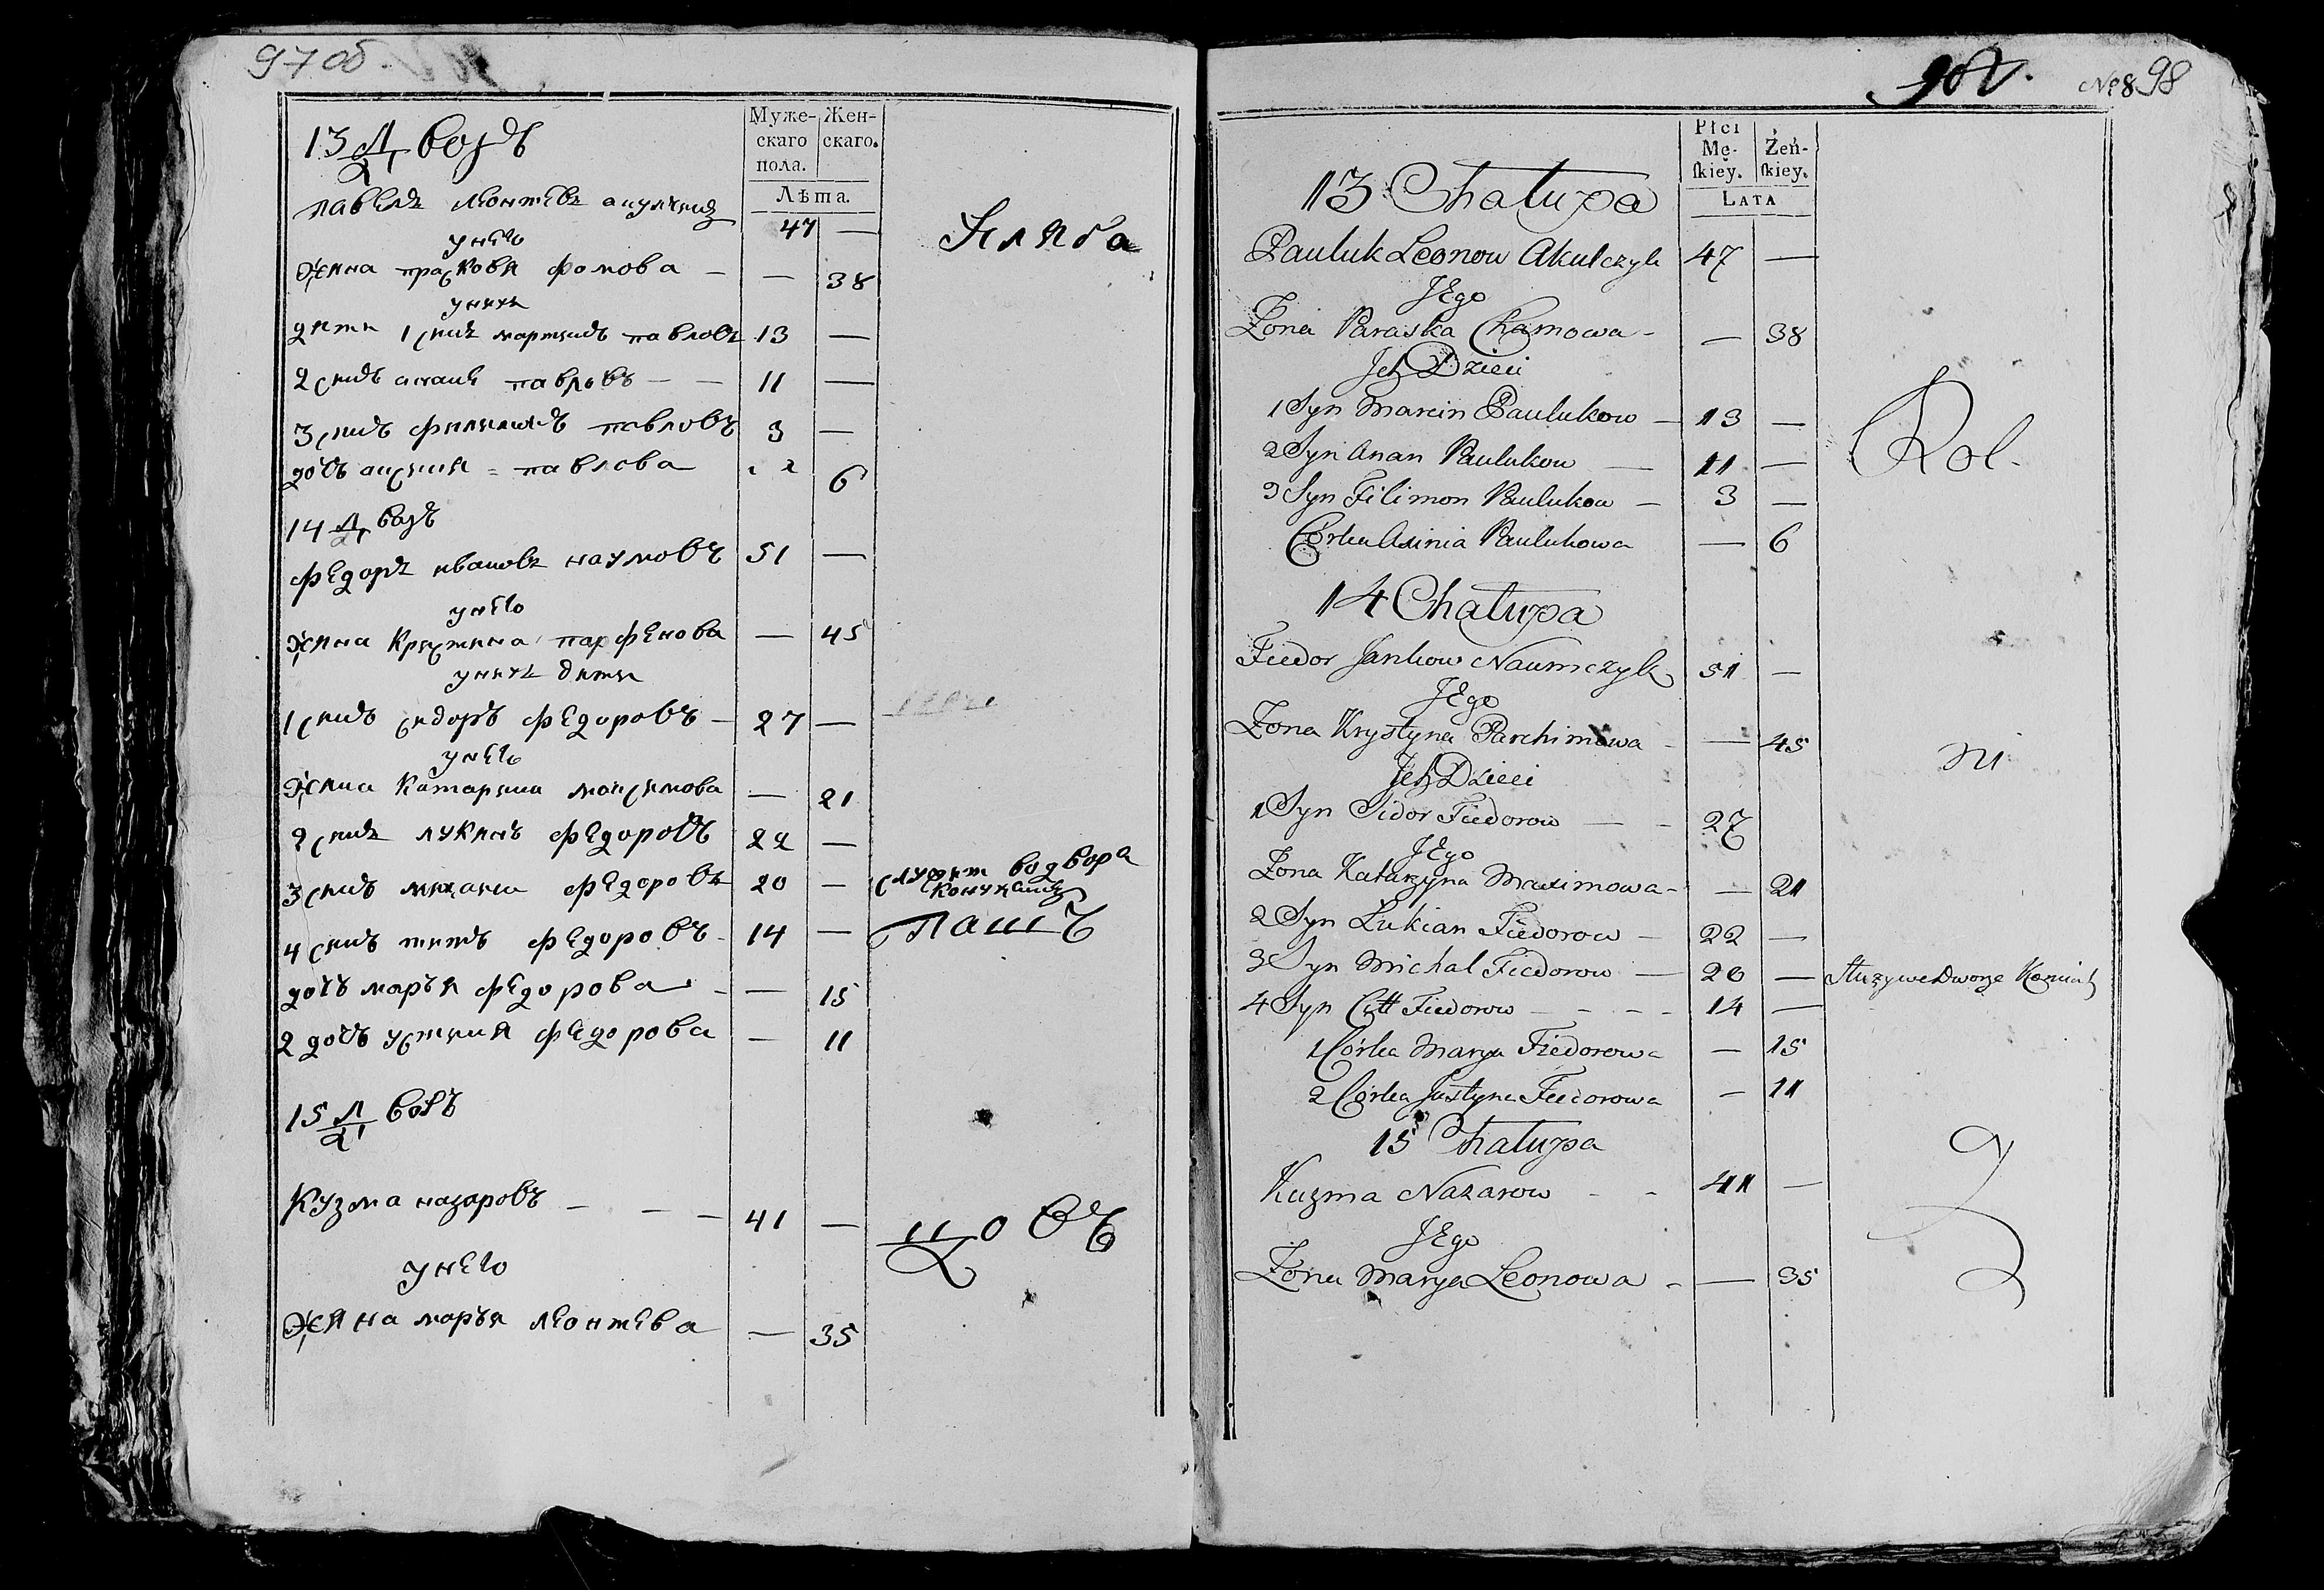 97 об.
13 Дворъ
Муже-
скаго
пола.
Жен-
скаго.
Лѣта.
павелъ леонтевъ акулчикъ 47 —
унего
жина прасковя фомова — — 38
унихъ
дити 1 синъ мартинъ павловъ 13 —
2 синъ анани павловъ — — 11 —
3 синъ филимонъ павловъ 3 —
дочъ аксиня = павлова 6
14 Дворъ
федоръ ивановъ наумовъ 51 —
унего
жина кристина парфенова — 45
унихъ дити
1 синъ сидоръ федоровъ — 27 —
унего
жина катарина максимова — 21
2 синъ лукянъ федоровъ 22 —
3 синъ михаила федоровъ 20 — служит водвора
4 синъ титъ федоровъ 14 — пашъ
дочъ маръя федорова — 15
2 дочъ устиня федорова — 11
15 Дворъ
Кузма назаровъ — — — 41 —
унего
жина маръя леонтева — 35
№ 8 98
Płci
Mę-
ſkiey.
Żeń-
ſkiey.
LATA
13 Chałupa
Pauluk Leonow Akulczyk 47 —
JEgo
Żona Paraska Chamowa — — 38
Jch Dzieci
1 Syn Marcin Paulukow — 13 —
2 Syn Anan Paulukow — 11 —
3 Syn Filimon Paulukow — 3 —
Córka Axinia Paulukowa — 6
Rol.
14 Chałupa
Fiedor Jankow Naumczyk 51 —
JEgo
Żona Krystyna Parchimowa — — 45
ni
Jch Dzieci
1 Syn Sidor Fiedorow — — 27
JEgo
Żona Katarzyna Maximowa — — 21
2 Syn Łukian Fiedorow — 22 —
3 Syn Michał Fiedorow — 20 — Służy we Dworze
4 Syn Citt Fiedorow — — — — 14 —
1 Córka Marya Fiedorowa — 15
2 Córka Justyna Fiedorowa — 11
15 Chałupa
Kuzma Nazarow — — 41 —
JEgo
Żona Marya Leonowa — — 35